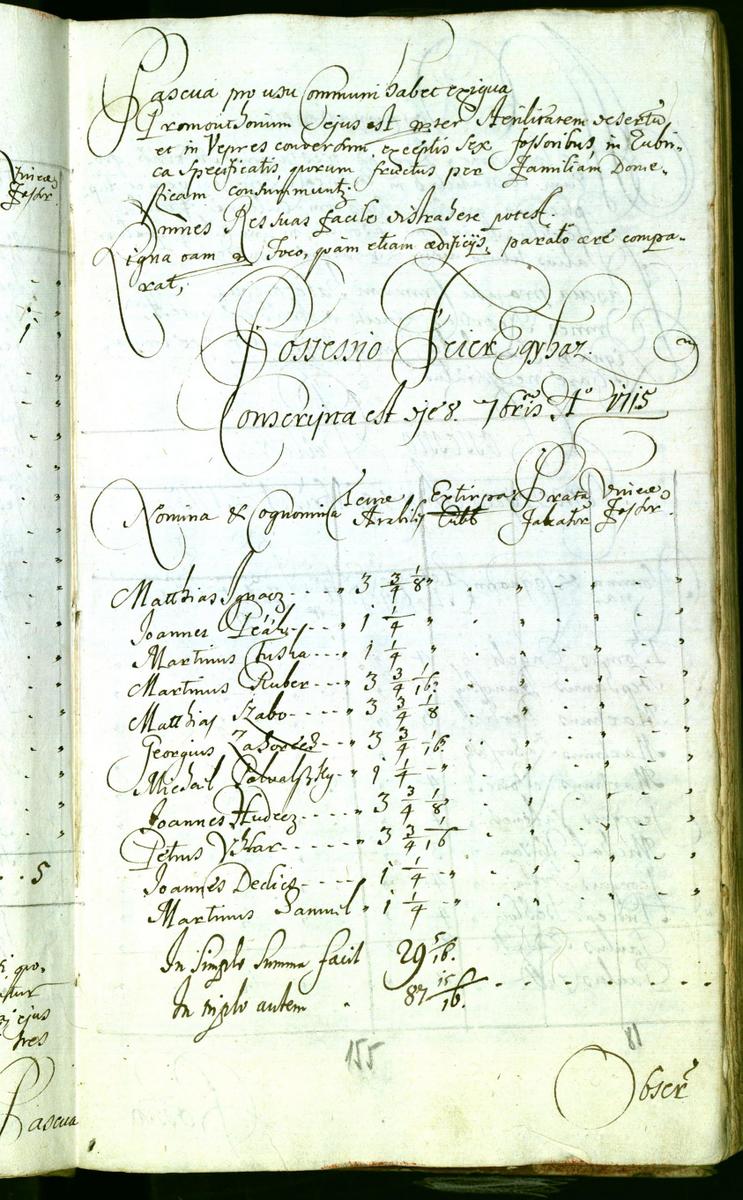 Pascua pro usu Communi habet exigua
Promonthorium Ejus est propter sterilitatem desertu
et in Vepres conversum, exceptis sex fossoribus, in Rubri-
ca specificatis, quorum fructus per familiam Dome-
sticam consummunt
Omnes Res suas facile distrahere potest.
Ligna tam pro Foco, quam etiam ædificijs, parato ære compa-
rat,
Possessio Feier Egyhaz
Conscripta est die 8. 7bris Ao 1715
Nomina & Cognomina Terræ Arabilis Extirpa Cubb Prata Falcator Vineæ Fossor
Matthias Ignacz " 3 3/4 1/8 "
Joannes " 1 1/4 "
Martinus " 1 1/4 "
Martinus Ruber " 3 3/4 1/16.
Matthias Szabo " 3 3/4 1/8
Georgius Zahorecz " 3 3/4 1/16.
Michael " 1 1/4 "
Joannes Hudecz " 3 3/4 1/8
Petrus " 3 3/4 1/16
Joannes Dedics " 1 1/4 "
Martinus Samuel " 1 1/4 "
In simplo summa facit 29 5/16.
In triplo autem 87 15/16.
155
81
Obser
Vineæ
Fossor
1
5
ejus
Pascua